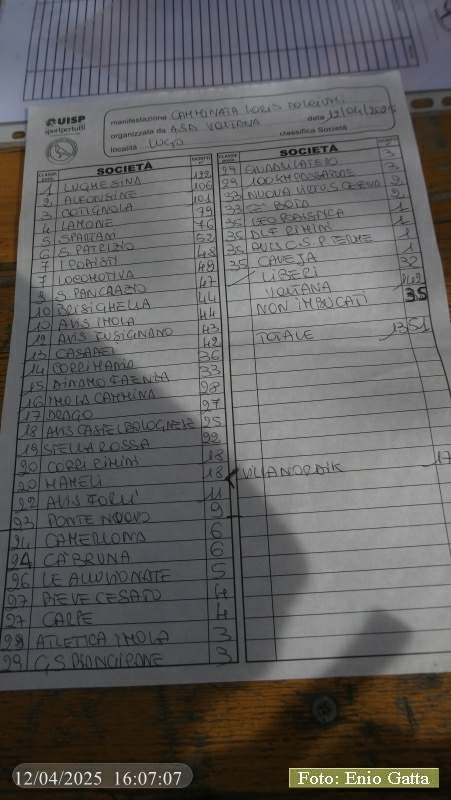 UISP
sportpertutti
manifestazione CAMMINATA LORIS BOLGIUMI
organizzata da A.S.D VOLTANA data 12/04/2025
località LUGO classifica Società
SOCIETÀ
1 LUGHESINA 122
2 ALFONSINE 106
3 COTIGNOLA 101
4 LAMONE 79
5 SPARTAN 76
6 S. PATRIZIO 52
7 I PODISTI 48
7 LOCOMOTIVA 48
9 S. PANCRAZIO 47
10 BRISIGHELLA 44
10 AVIS IMOLA 44
12 AVIS FUSIGNANO 43
13 CASADEI 42
14 CORRIMANIA 36
15 DINAMO FAENZA 33
16 IMOLA CAMMINA 28
17 DRAGO 27
18 AVIS CASTELBOLOGNESE 25
19 STELLA ROSSA 22
20 CORRI RIMINI 18
20 MAMELI 18
22 AVIS FORLI' 11
23 PONTE NUOVO 9
24 CAMERLONA 6
24 CA' BRUNA 6
26 LE ALLUVIONATE 5
27 PIEVE CESATO 4
27 CARPE 4
29 ATLETICA IMOLA 3
29 G.S. 3
SOCIETÀ
29 QUADRILATERO 3
29 100 KM PASSATORE 3
33 NUOVA VIRTUS CESENA 2
33 2
35 LEOPODISTICA 2
35 DLF RIMINI 1
35 AVIS C.S.P. TERME 1
35 CAVEJA 1
LIBERI 32
VOLTANA
NON IMBUCATI 35
TOTALE 1351
VILLANORDIK 17
12/04/2025 16:07:07
Foto: Enio Gatta